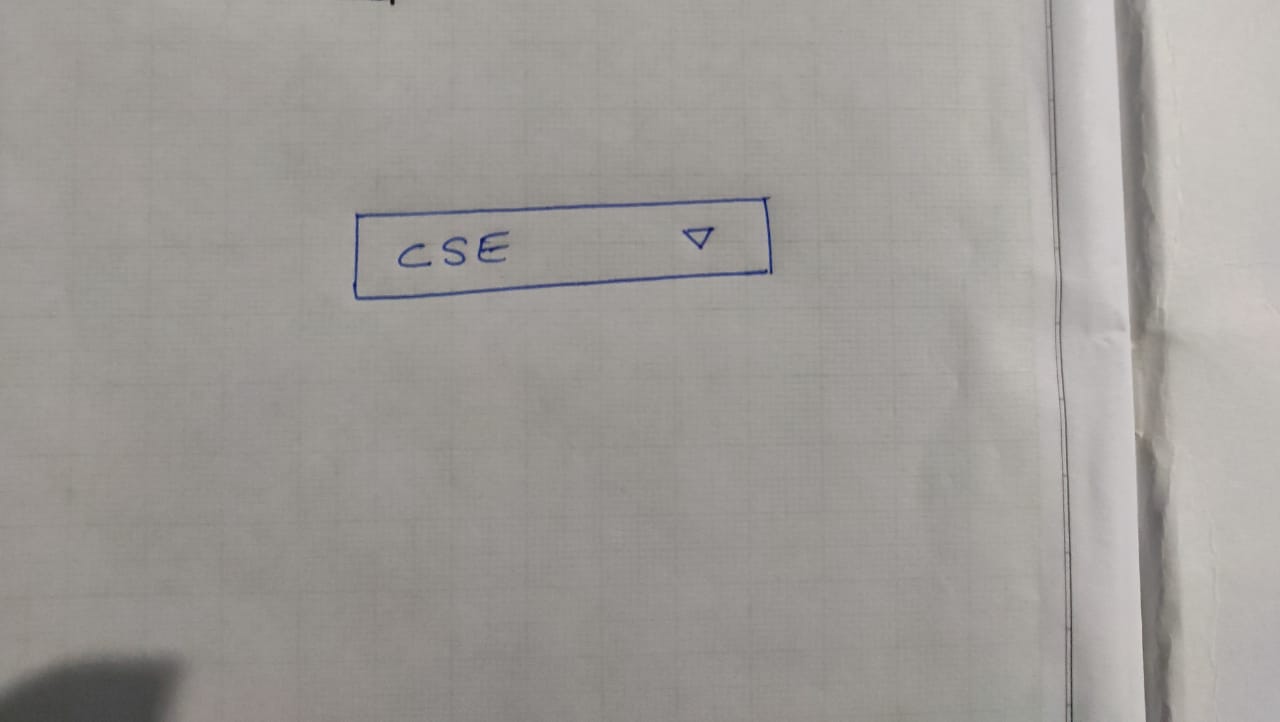 CSE ▽